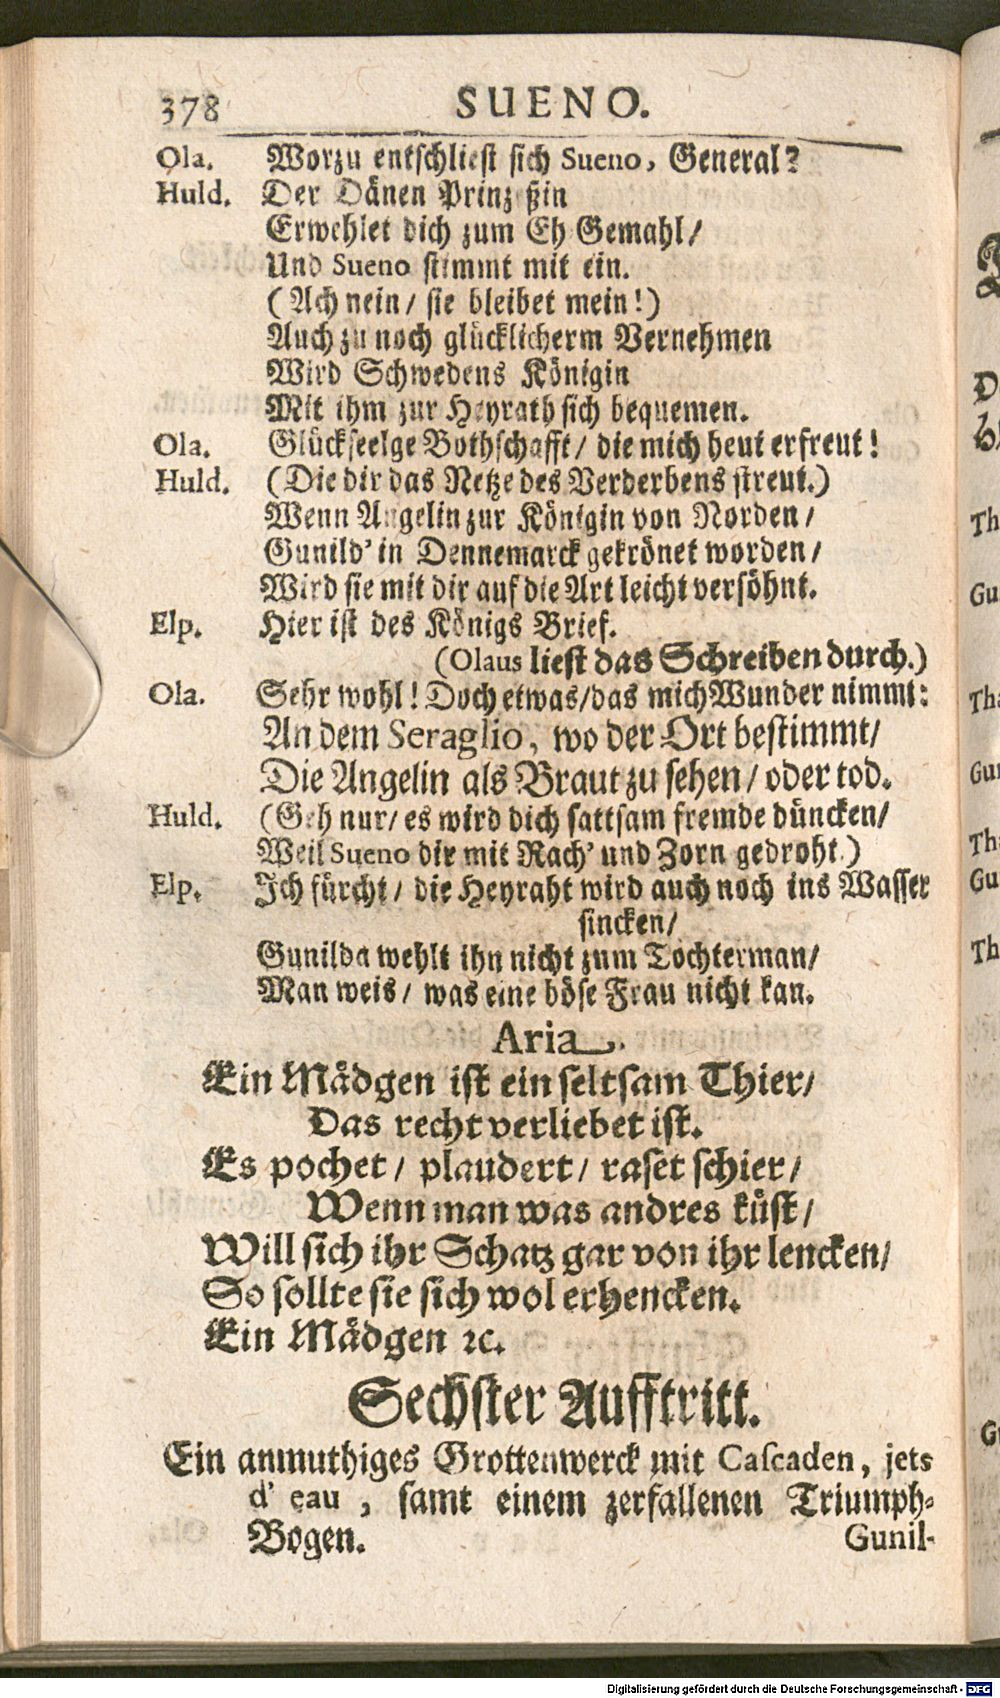 378 SUENO.
Ola. Worzu entschliest sich Sueno, General?
Huld. Der Dänen Prinzeßin
Erwehlet dich zum Eh Gemahl/
Und Sueno stimmt mit ein.
(Ach nein/ sie bleibet mein!)
Auch zu noch glücklicherm Vernehmen
Wird Schwedens Königin
Mit ihm zur Heyrath sich bequemen.
Ola. Glückseelge Bothschafft/ die mich heut erfreut!
Huld. (Die dir das Netze des Verderbens streut.)
Wenn Angelin zur Königin von Norden/
Gunild' in Dennemarck gekrönet worden/
Wird sie mit dir auf die Art leicht versöhnt.
Elp. Hier ist des Königs Brief.
(Olaus liest das Schreiben durch.)
Ola. Sehr wohl! Doch etwas/das mich Wunder nimmt:
An dem Seraglio, wo der Ort bestimmt/
Die Angelin als Braut zu sehen/ oder tod.
Huld. (Geh nur/ es wird dich sattsam fremde düncken/
Weil Sueno dir mit Rach' und Zorn gedroht.)
Elp. Ich fürcht/ die Heyraht wird auch noch ins Wasser
sincken/
Gunilda wehlt ihn nicht zum Tochterman/
Man weis/ was eine böse Frau nicht kan.
Aria.
Ein Mädgen ist ein seltsam Thier/
Das recht verliebet ist.
Es pochet/ plaudert/ raset schier/
Wenn man was andres küst/
Will sich ihr Schatz gar von ihr lencken/
So sollte sie sich wol erhencken.
Ein Mädgen ꝛc.
Sechster Aufftritt.
Ein anmuthiges Grottenwerck mit Cascaden, jets
d' eau, samt einem zerfallenen Triumph-
Bogen. Gunil-
D
Th
Gu
Tha
Gu
Th
Gu
Th
G
Digitalisierung gefördert durch die Deutsche Forschungsgemeinschaft - DFG